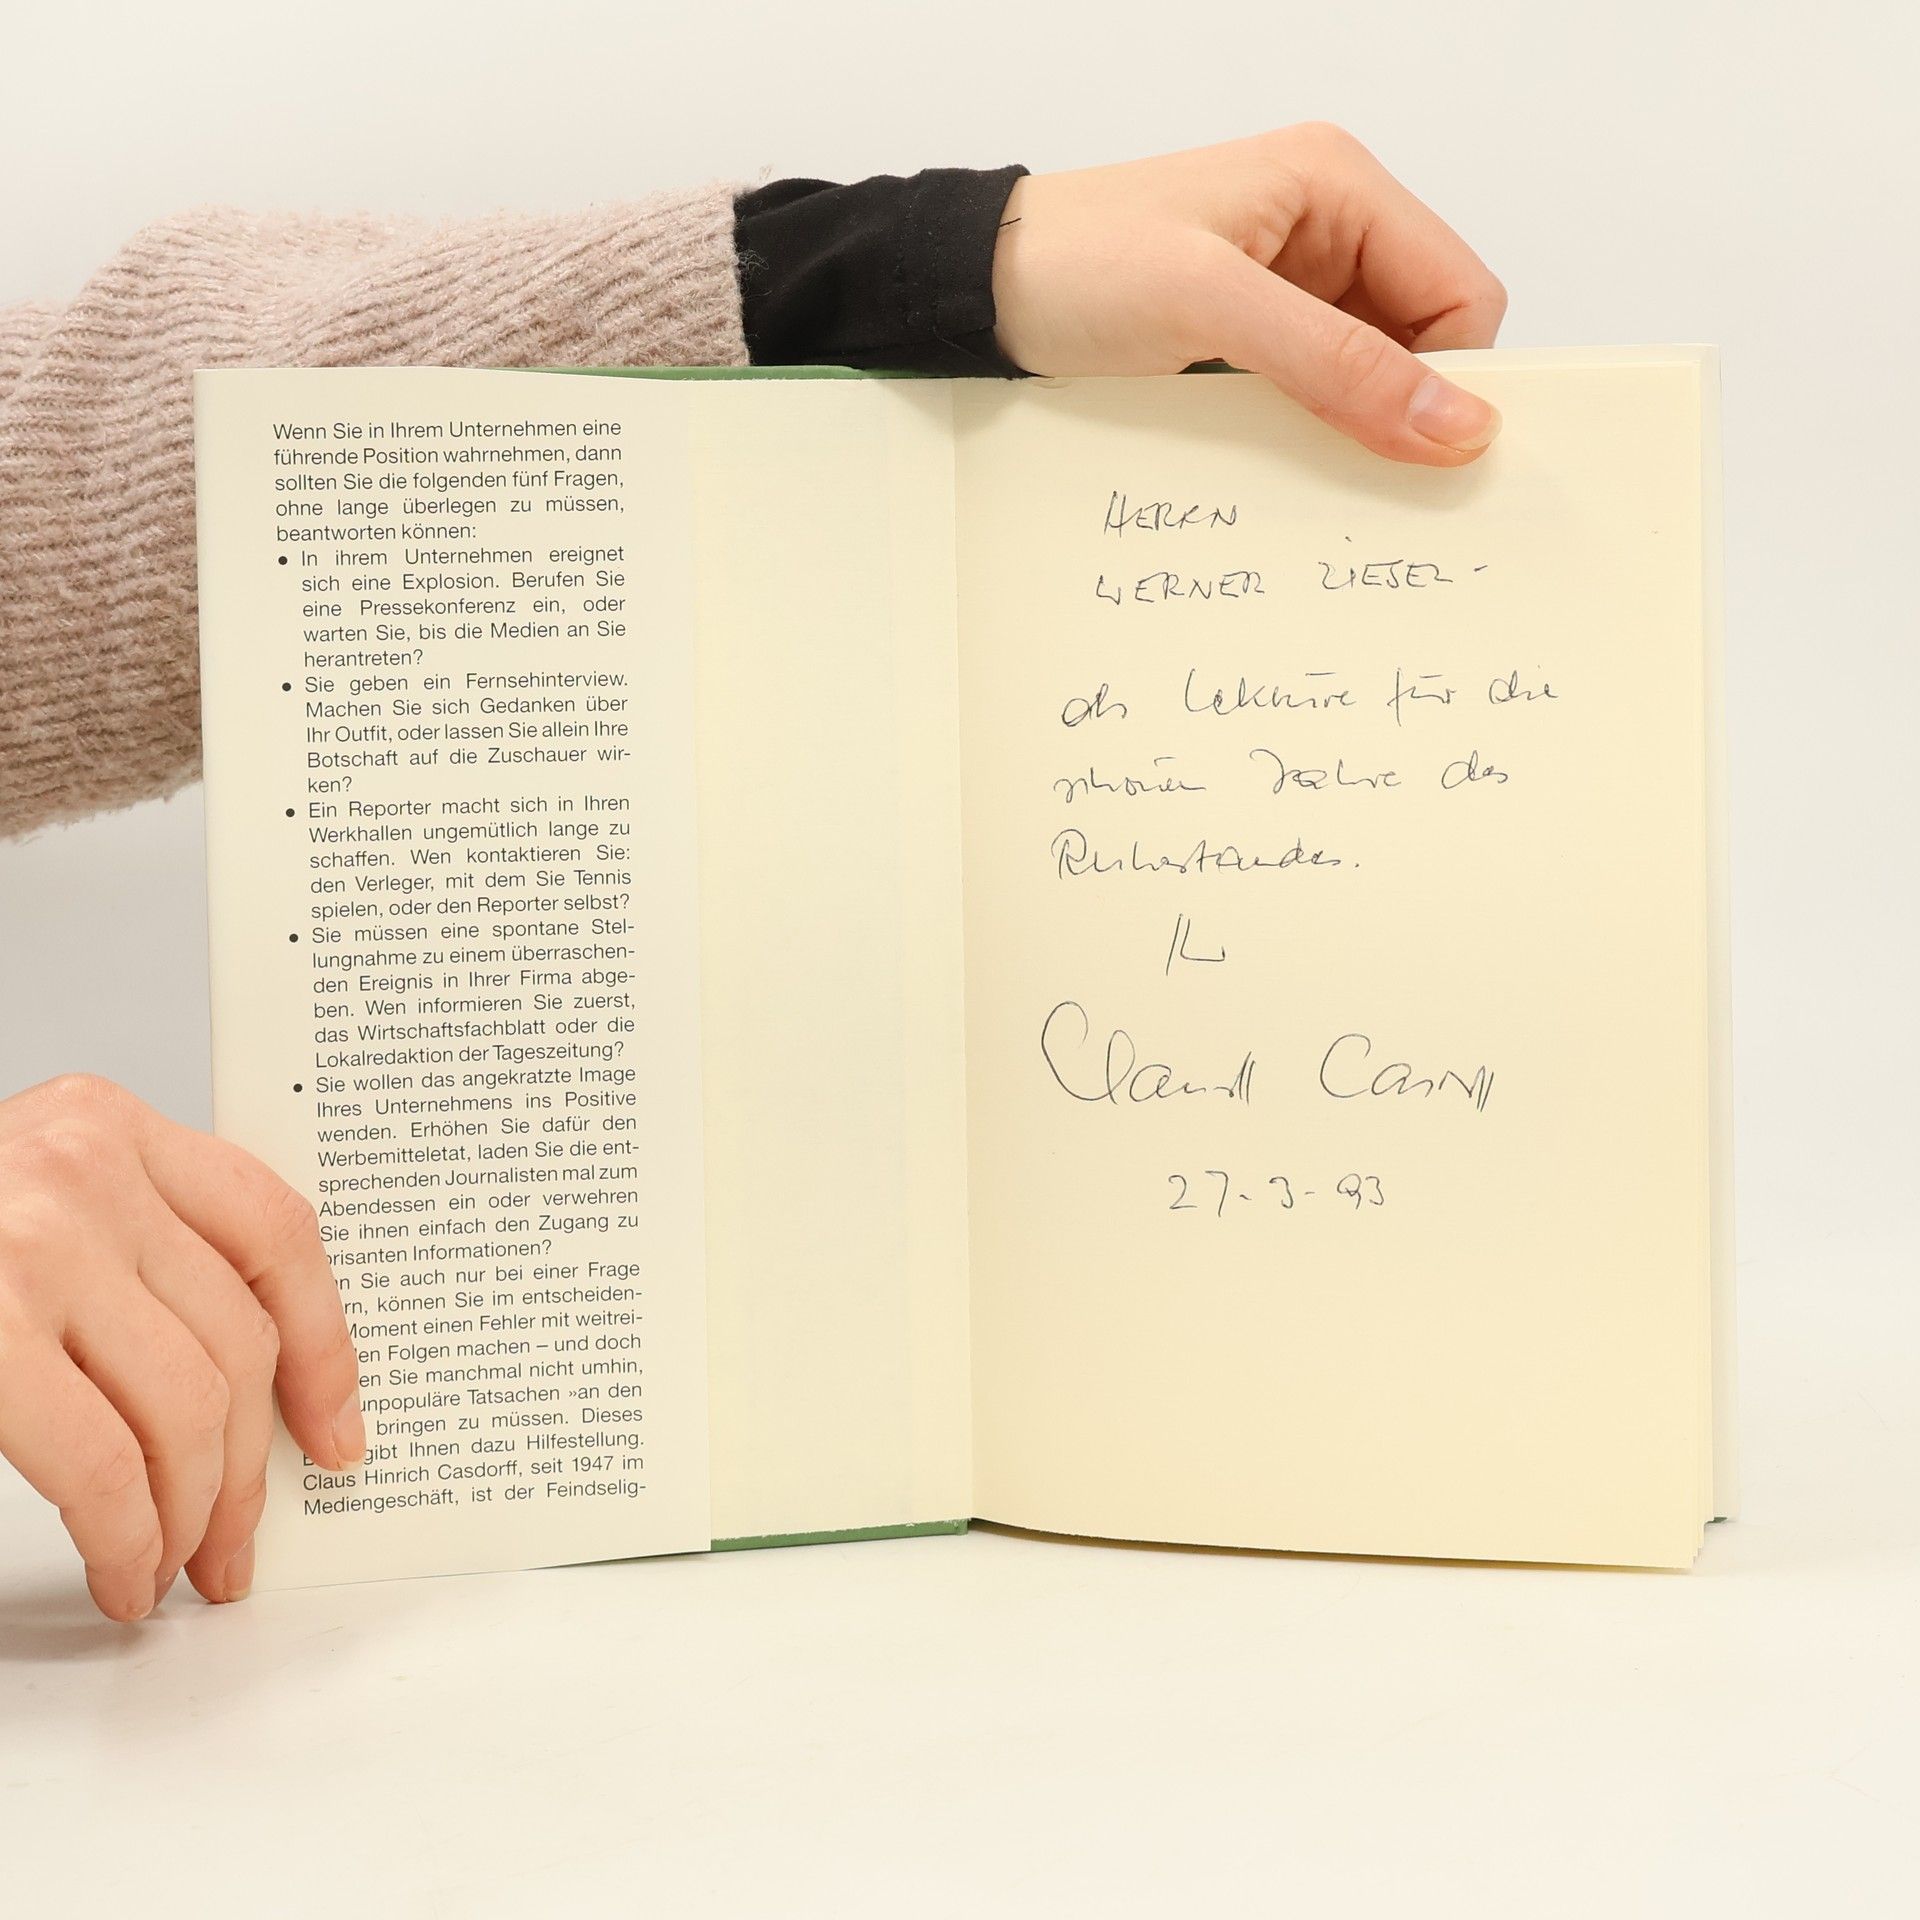 Wenn Sie in Ihrem Unternehmen eine
führende Position wahrnehmen, dann
sollten Sie die folgenden fünf Fragen,
ohne lange überlegen zu müssen,
beantworten können:
• In ihrem Unternehmen ereignet
sich eine Explosion. Berufen Sie
eine Pressekonferenz ein, oder
warten Sie, bis die Medien an Sie
herantreten?
• Sie geben ein Fernsehinterview.
Machen Sie sich Gedanken über
Ihr Outfit, oder lassen Sie allein Ihre
Botschaft auf die Zuschauer wir-
ken?
• Ein Reporter macht sich in Ihren
Werkhallen ungemütlich lange zu
schaffen. Wen kontaktieren Sie:
den Verleger, mit dem Sie Tennis
spielen, oder den Reporter selbst?
• Sie müssen eine spontane Stel-
lungnahme zu einem überraschen-
den Ereignis in Ihrer Firma abge-
ben. Wen informieren Sie zuerst,
das Wirtschaftsfachblatt oder die
Lokalredaktion der Tageszeitung?
• Sie wollen das angekratzte Image
Ihres Unternehmens ins Positive
wenden. Erhöhen Sie dafür den
Werbemitteletat, laden Sie die ent-
sprechenden Journalisten mal zum
Abendessen ein oder verwehren
Sie ihnen einfach den Zugang zu
brisanten Informationen?
Sie auch nur bei einer Frage
können Sie im entscheiden-
Moment einen Fehler mit weitrei-
Folgen machen – und doch
Sie manchmal nicht umhin,
unpopuläre Tatsachen »an den
bringen zu müssen. Dieses
gibt Ihnen dazu Hilfestellung.
Claus Hinrich Casdorff, seit 1947 im
Mediengeschäft, ist der Feindselig-
HERRN
WERNER ZIESEL -
als Lektüre für die
schönen Jahre des
Ruhestandes.
Casdorff
27-3-93